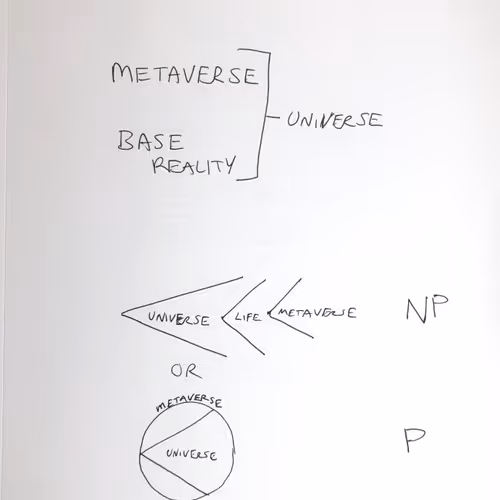 METAVERSE
UNIVERSE
BASE
REALITY
UNIVERSE LIFE METAVERSE NP
OR
METAVERSE
UNIVERSE
P